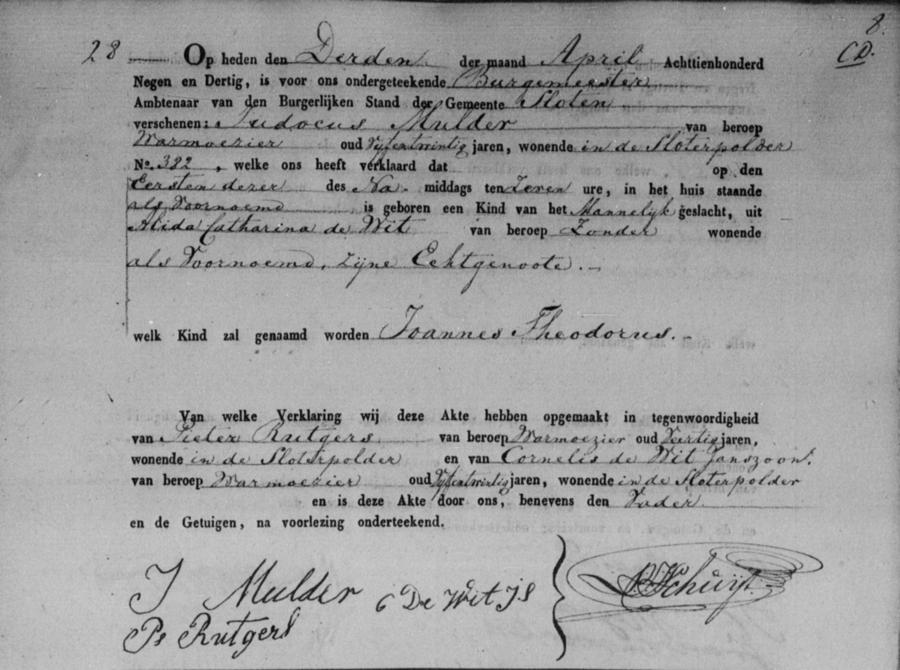 8.
28 Op heden den Derden der maand April Achttienhonderd CD.
Negen en Dertig, is voor ons ondergeteekende Burgemeester
Ambtenaar van den Burgerlijken Stand der Gemeente Sloten
verschenen: Judocus Mulder van beroep
Warmoezier oud Vyfentwintig jaren, wonende in de Sloterpolder
No. 382, welke ons heeft verklaard dat op den
Eersten dezer des Na- middags ten Zeven ure, in het huis staande
als Voornoemd is geboren een Kind van het Mannelyk geslacht, uit
Alida Catharina de Wit van beroep Zonder wonende
als Voornoemd, zijne Echtgenoote.
welk Kind zal genaamd worden Joannes Theodorus.
Van welke Verklaring wij deze Akte hebben opgemaakt in tegenwoordigheid
van Pieter Rutgers van beroep Warmoezier oud Veertig jaren,
wonende in de Sloterpolder en van Cornelis de Wit Janszoon
van beroep Warmoezier oud Vyfentwintig jaren, wonende in de Sloterpolder
en is deze Akte door ons, benevens den Vader
en de Getuigen, na voorlezing onderteekend.
J Mulder C De Wit Js Schuyt
Ps Rutgers